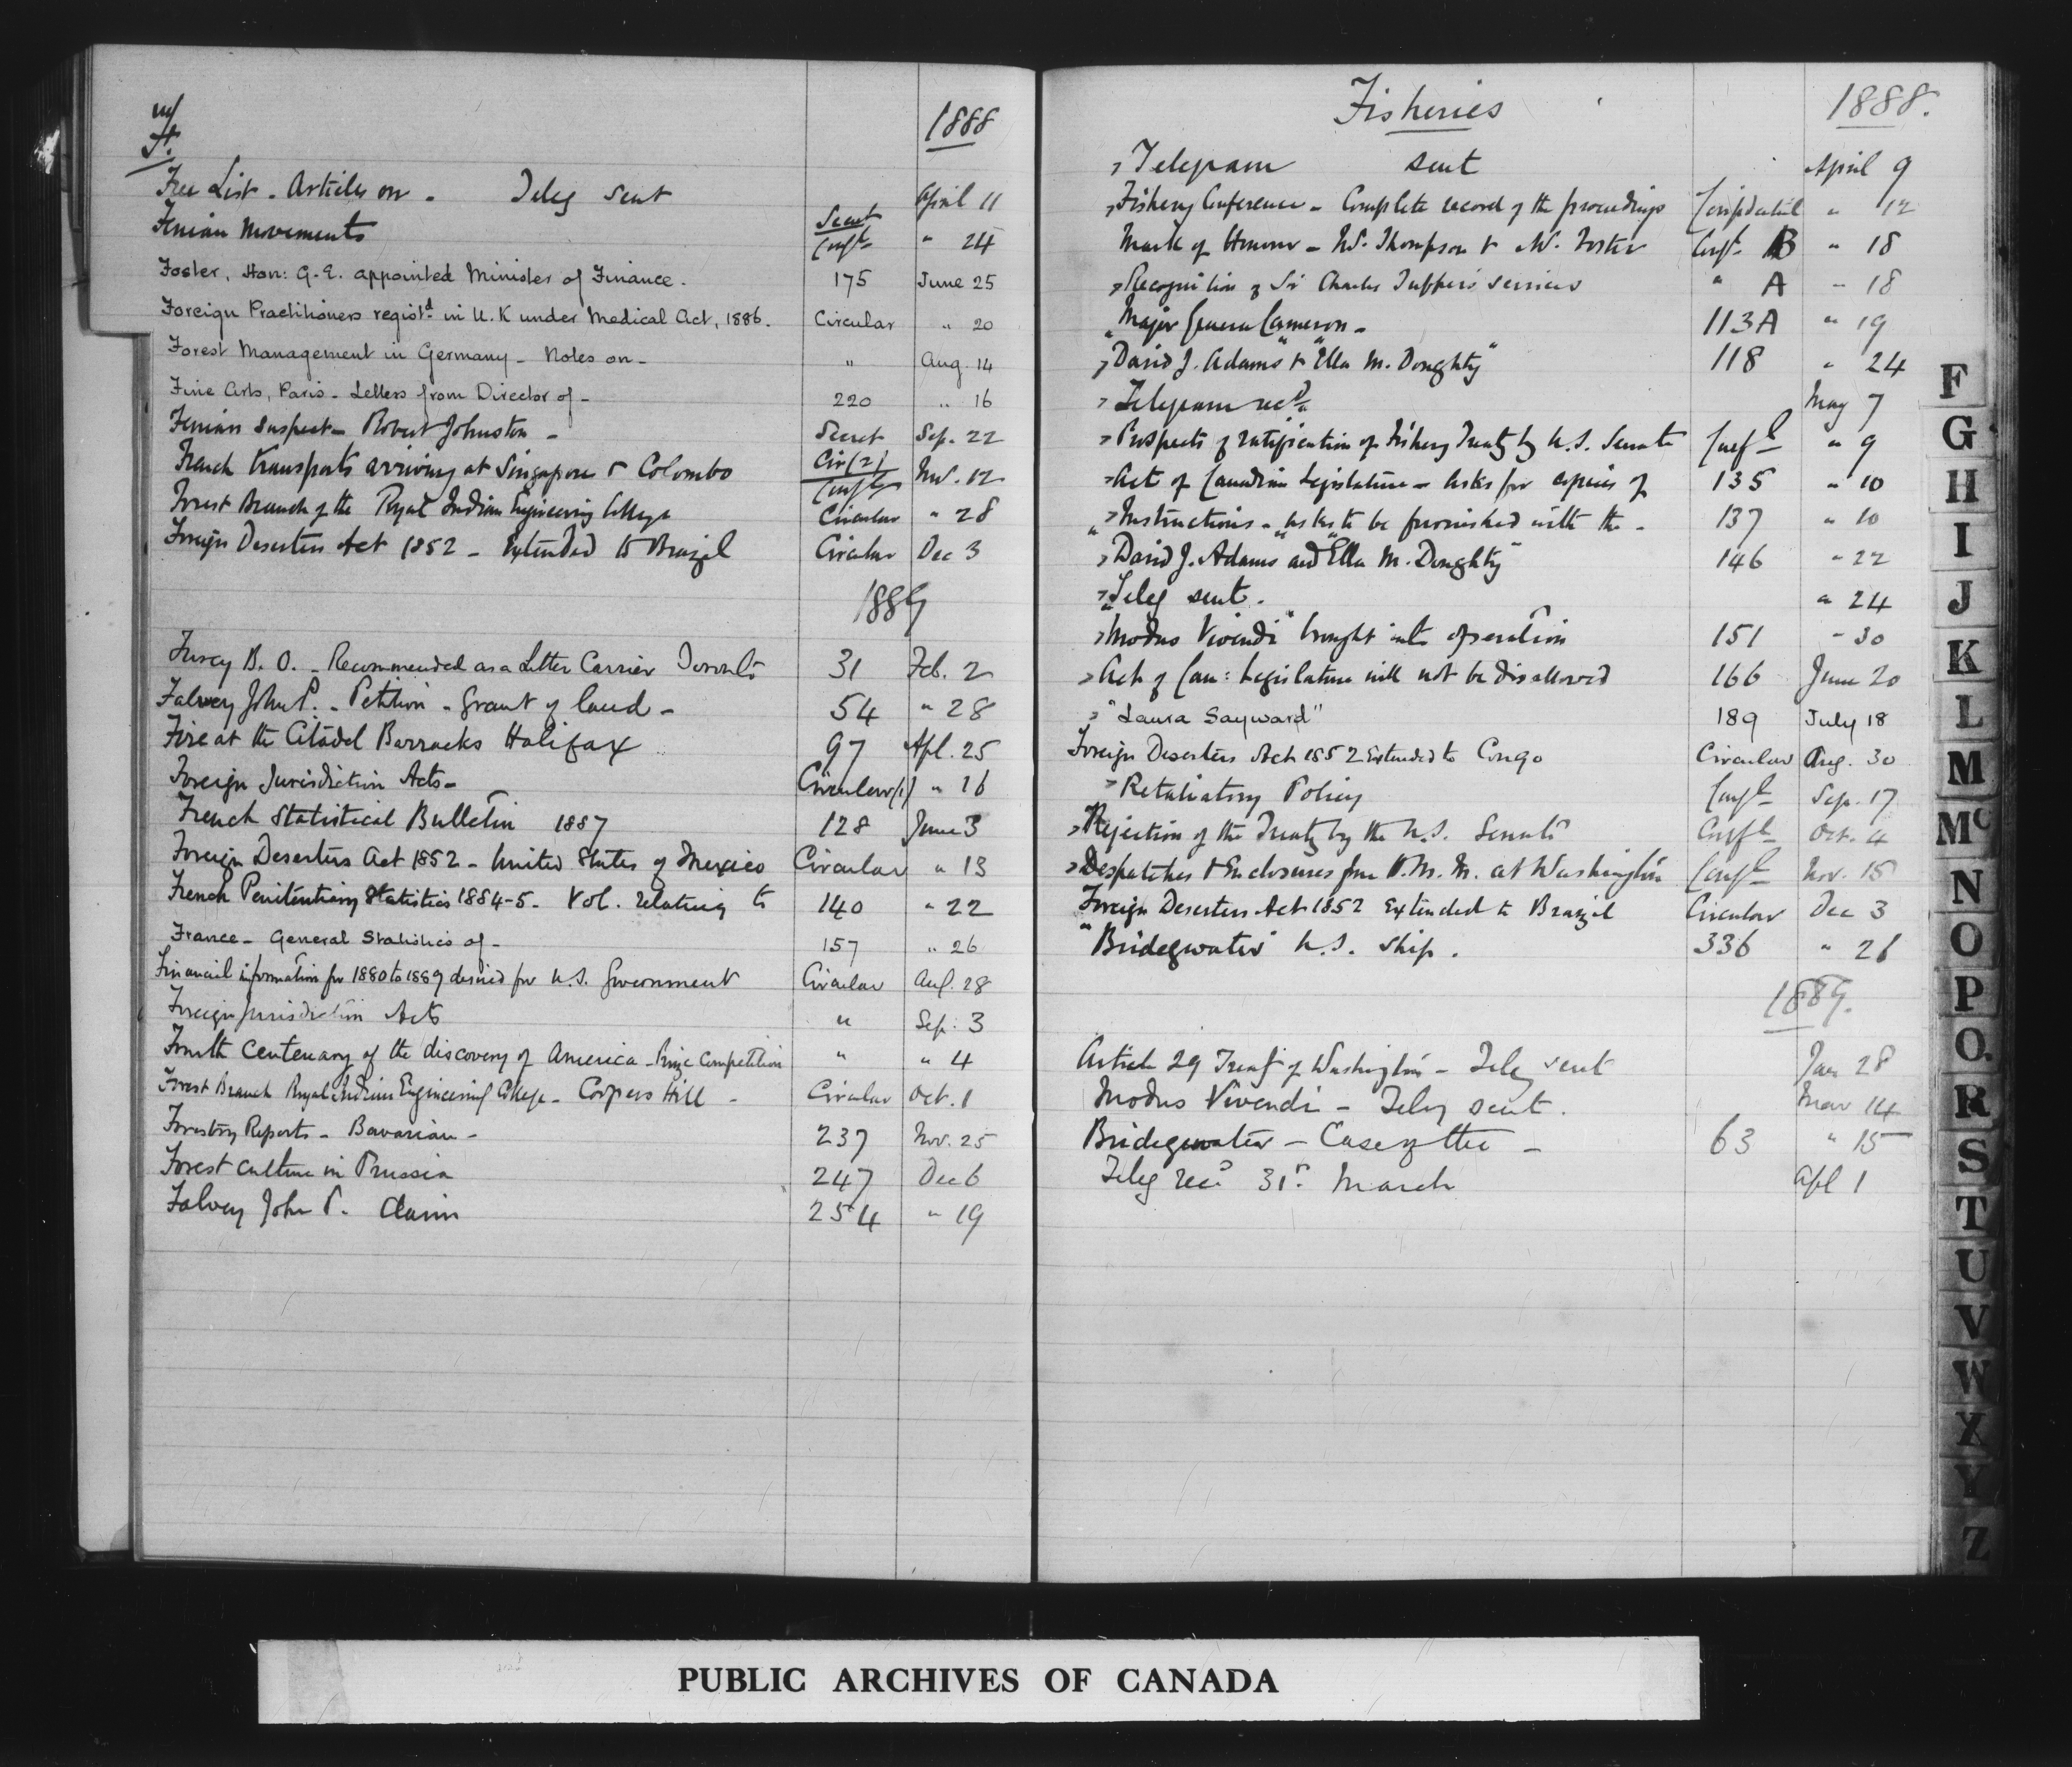 1888
F.
Free List - Articles on - Teleg sent April 11
Fenian Movements Secret Conf^l " 24
Foster, Hon: G. E. appointed Minister of Finance. 175 June 25
Foreign Practitioners regist^d in U. K under Medical Act, 1886. Circular " 20
Forest Management in Germany - Notes on - " Aug. 14
Fine Arts, Paris - Letters from Director of - 220 " 16
Fenian Suspect - Robert Johnston - Secret Sep. 22
French transports arriving at Singapore & Colombo Cir (2) Conf^l Nov. 12
Forest Branch of the Royal Indian Engineering College Circular " 28
Foreign Deserters Act 1852 - Extended to Brazil Circular Dec 3
1889
Furey B. O. - Recommended as a Letter Carrier Toronto 31 Feb. 2
Falvey John P. - Petition - Grant of land - 54 " 28
Fire at the Citadel Barracks Halifax 97 Apl. 25
Foreign Jurisdiction Acts - Circular (1) " 16
French Statistical Bulletin 1887 128 June 3
Foreign Deserters Act 1852 - United States of Mexico Circular " 13
French Penitentiary Statistics 1884-5 - Vol. relating to 140 " 22
France - General Statistics of - 157 " 26
Financial information for 1880 to 1889 desired for U.S. Government Circular Aug. 28
Foreign Jurisdiction Acts " Sep. 3
Fourth Centenary of the discovery of America - Prize Competition " " 4
Forest Branch Royal Indian Engineering College - Coopers Hill - Circular Oct. 1
Forestry Reports - Bavarian - 237 Nov. 25
Forest Culture in Prussia 247 Dec 6
Falvey John P. Claim 254 " 19
Fisheries 1888.
Telegram sent April 9
Fishery Conference - Complete record of the proceedings Confidential " 12
Mark of Honour - Mr. Thompson & Mr. Foster Conf^l B " 18
Recognition of Sir Charles Tupper's services " A " 18
Major General Cameron - 113A " 19
"David J. Adams" & "Ella M. Doughty" 118 " 24
Telegram rec^d May 7
Prospects of ratification of Fishery Treaty by U.S. Senate Conf^l " 9
Act of Canadian Legislature - asks for copies of 135 " 10
Instructions - asks to be furnished with the - 137 " 10
"David J. Adams" and "Ella M. Doughty" 146 " 22
Teleg sent. " 24
"Modus Vivendi" brought into operation 151 " 30
Act of Can: Legislature will not be disallowed 166 June 20
"Laura Sayward" 189 July 18
Foreign Deserters Act 1852 Extended to Congo Circular Aug. 30
Retaliatory Policy Conf^l Sep. 17
Rejection of the Treaty by the U.S. Senate Conf^l Oct. 4
Despatches & Enclosures from H.M.M. at Washington Conf^l Nov. 15
Foreign Deserters Act 1852 Extended to Brazil Circular Dec 3
"Bridgewater" U.S. Ship. 336 " 26
1889.
Article 29 Treaty of Washington - Teleg sent Jan 28
Modus Vivendi - Teleg sent. Mar 14
Bridgewater - Case of the - 63 " 15
Teleg rec^d 31st March Apl 1
F
G
H
I
J
K
L
M
Mc
N
O
P
Q.
R
S
T
U
V
W
X
Y
Z
PUBLIC ARCHIVES OF CANADA